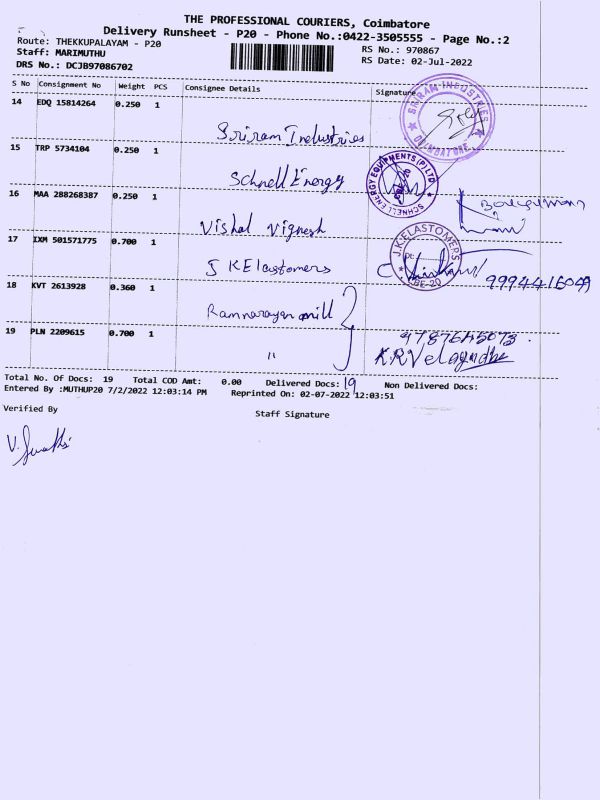 THE PROFESSIONAL COURIERS, Coimbatore
Delivery Runsheet - P20 - Phone No.:0422-3505555 - Page No.:2
Route: THEKKUPALAYAM - P20
RS No.: 970867
Staff: MARIMUTHU
RS Date: 02-Jul-2022
DRS No.: DCJB97086702
S No Consignment No Weight PCS Consignee Details Signature
14 EDQ 15814264 0.250 1
SRIRAM INDUSTRIES
COIMBATORE
Sriram Industries
15 TRP 5734104 0.250 1
SCHNELL ENERGY EQUIPMENTS (P) LTD
CBE-20
Schnell Energy
16 MAA 288268387 0.250 1
Vishal Vignesh
17 IXM 501571775 0.700 1
J.K.ELASTOMERS
CBE-20
J K Elastomers
9994416049
18 KVT 2613928 0.360 1
Ramnarayan mill
19 PLN 2209615 0.700 1
"
9787645073
Total No. Of Docs: 19 Total COD Amt: 0.00 Delivered Docs: 19 Non Delivered Docs:
Entered By :MUTHUP20 7/2/2022 12:03:14 PM Reprinted On: 02-07-2022 12:03:51
Verified By
Staff Signature